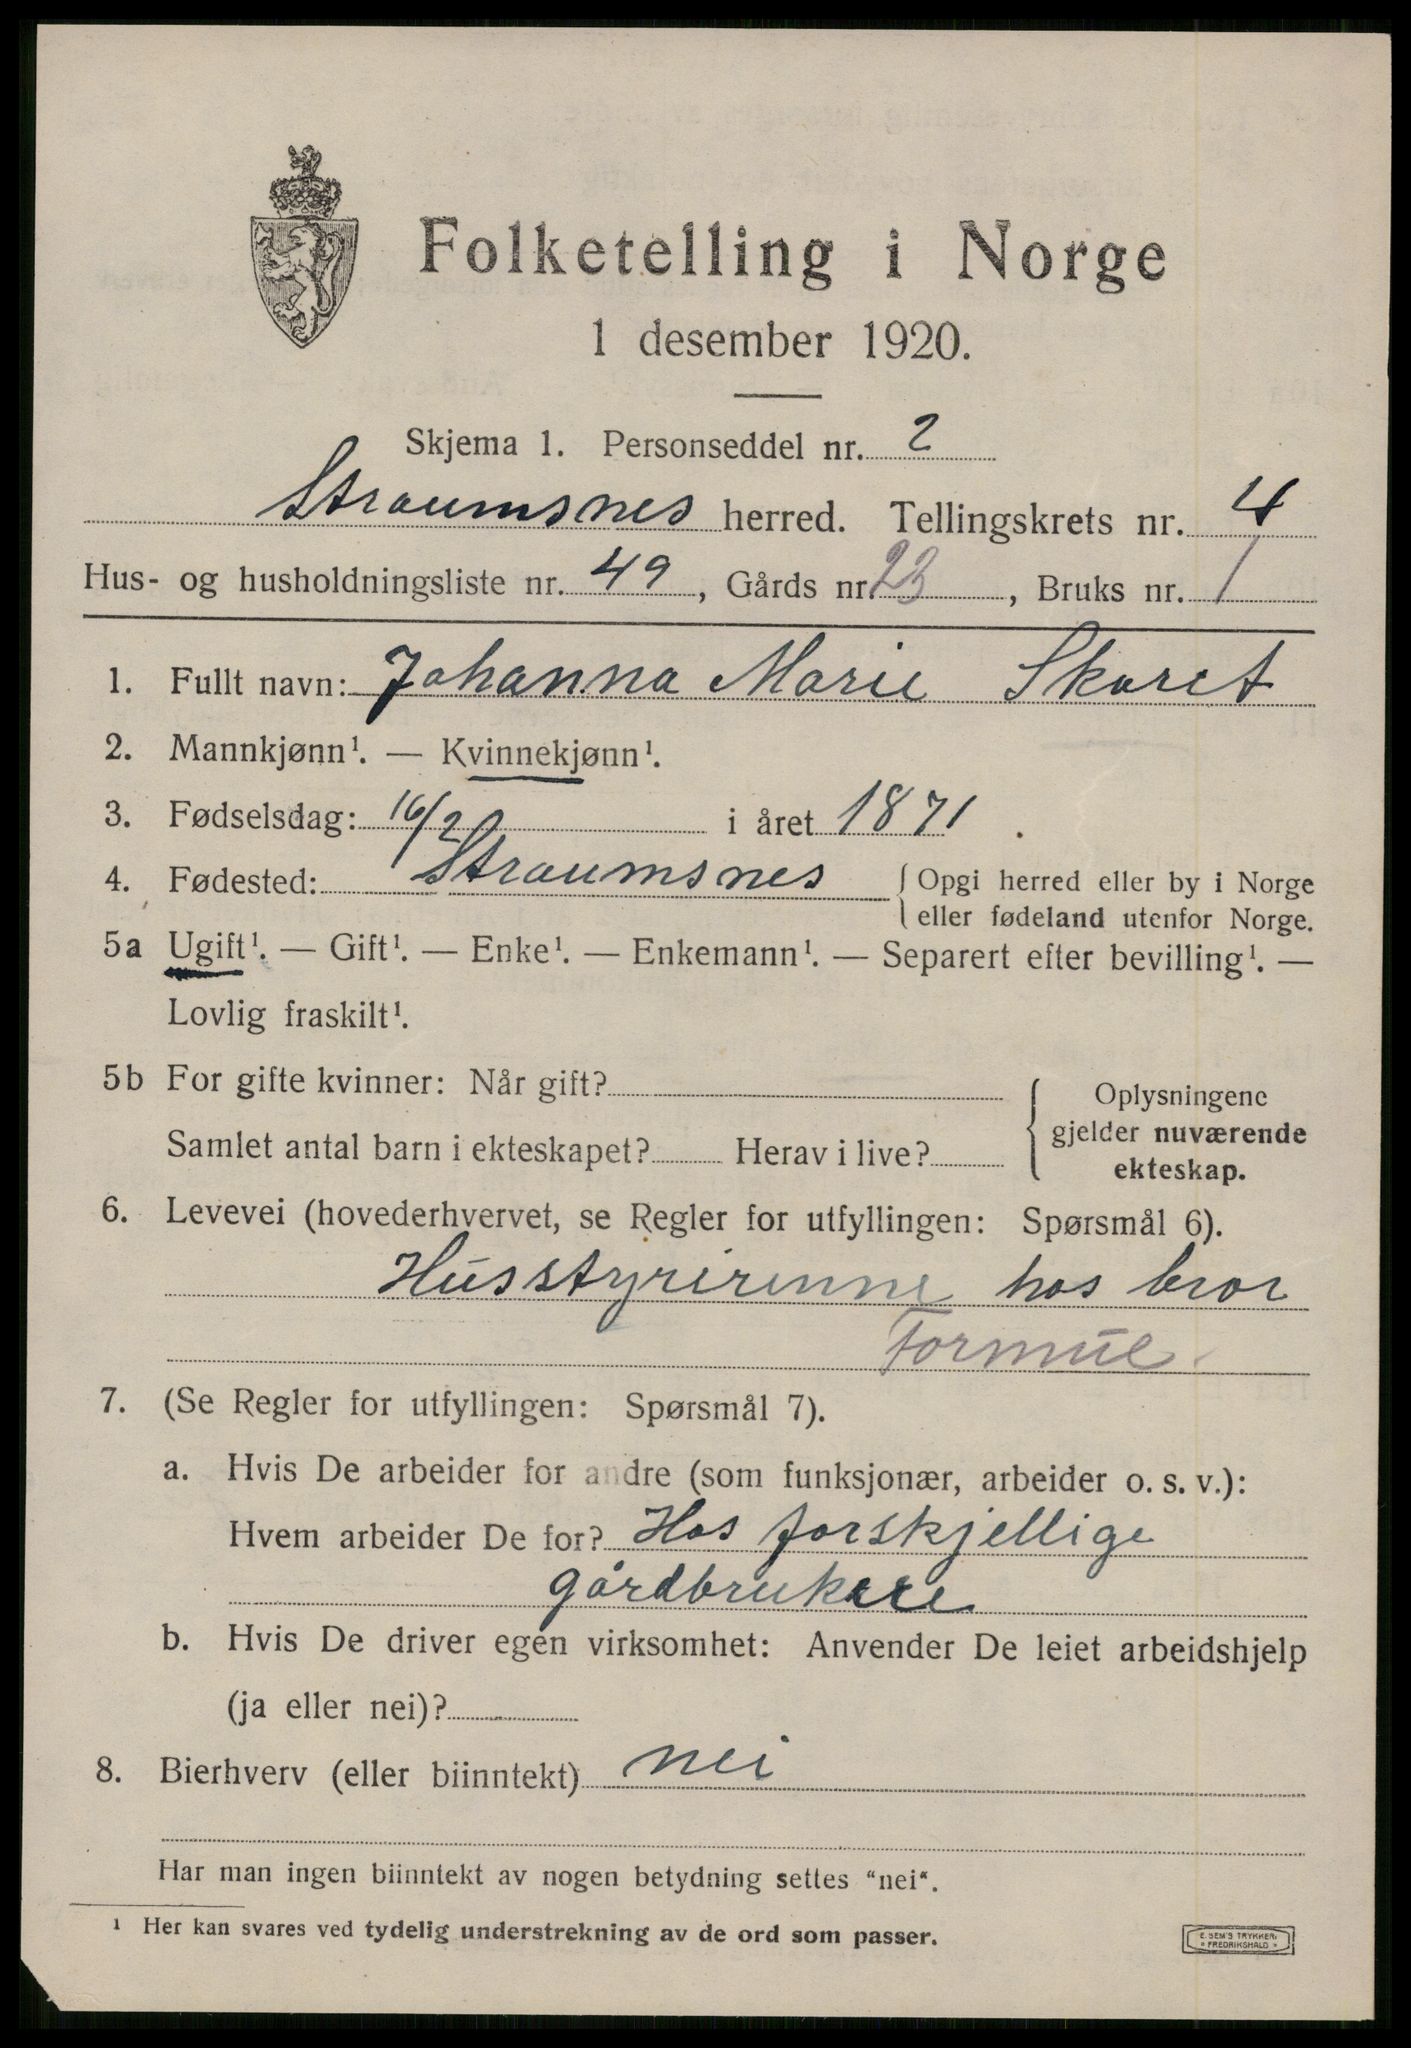 Folketelling i Norge
1 desember 1920.
Skjema 1. Personseddel nr. 2
Straumsnes herred. Tellingskrets nr. 4
Hus- og husholdningsliste nr. 49, Gårds nr. 23, Bruks nr. 1
1. Fullt navn: Johanna Marie Skaret
2. Mannkjønn¹. — Kvinnekjønn¹.
3. Fødselsdag: 16/2 i året 1871.
4. Fødested: Straumsnes { Opgi herred eller by i Norge
eller fødeland utenfor Norge.
5a Ugift¹. — Gift¹. — Enke¹. — Enkemann¹. — Separert efter bevilling¹. —
Lovlig fraskilt¹.
5b For gifte kvinner: Når gift?
Samlet antal barn i ekteskapet? Herav i live?
{ Oplysningene
gjelder nuværende
ekteskap.
6. Levevei (hovederhvervet, se Regler for utfyllingen: Spørsmål 6).
Husstyrirenne hos bror
Formue
7. (Se Regler for utfyllingen: Spørsmål 7).
a. Hvis De arbeider for andre (som funksjonær, arbeider o. s. v.):
Hvem arbeider De for? Hos forskjellige
gårdbrukere
b. Hvis De driver egen virksomhet: Anvender De leiet arbeidshjelp
(ja eller nei)?
8. Bierhverv (eller biinntekt) nei
Har man ingen biinntekt av nogen betydning settes "nei".
¹ Her kan svares ved tydelig understrekning av de ord som passer.
E. SEM'S TRYKKERI
* FREDRIKSHALD *